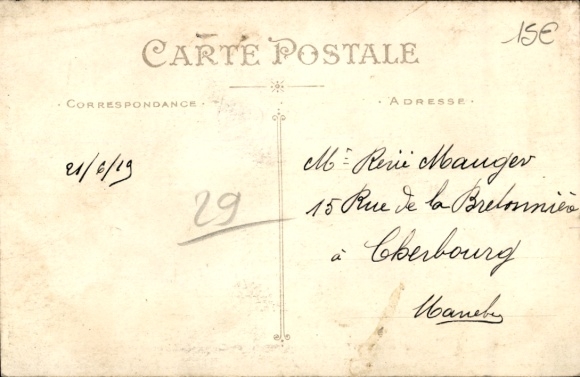 15€
CARTE POSTALE
CORRESPONDANCE
ADRESSE
21/6/19
29
Mr René Mauger
15 Rue de la Bretonnière
à Cherbourg
Manche